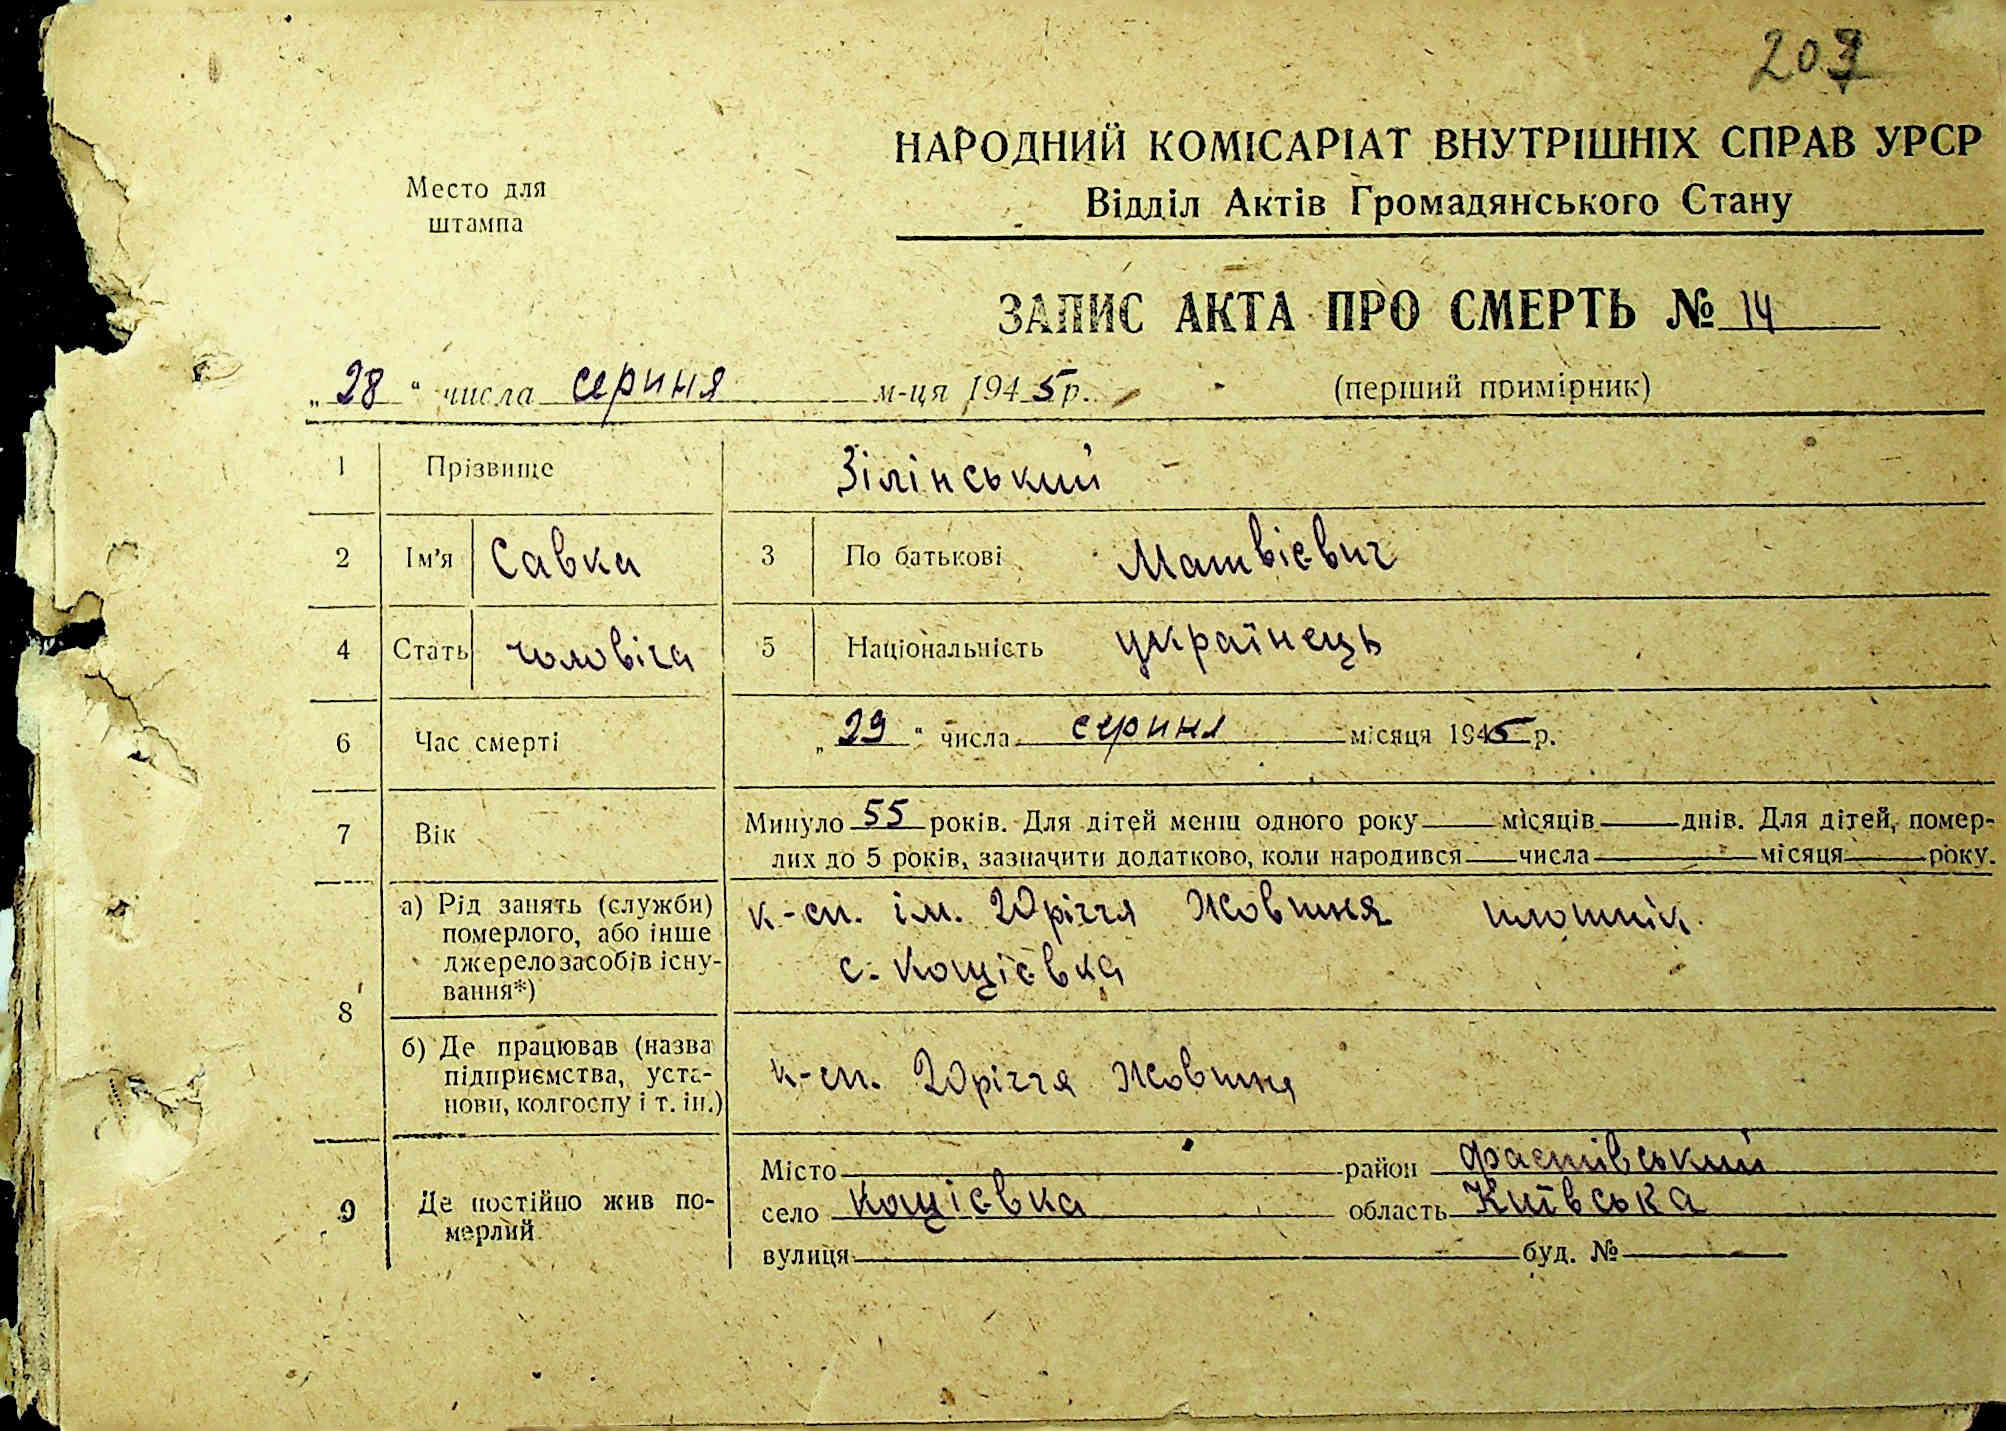 203
НАРОДНИЙ КОМІСАРІАТ ВНУТРІШНІХ СПРАВ УРСР
Відділ Актів Громадянського Стану
Место для
штампа
ЗАПИС АКТА ПРО СМЕРТЬ № 14
„28“ числа серпня м-ця 1945 р.
(перший примірник)
1 Прізвище Зілінський
2 Ім'я Савка 3 По батькові Матвієвич
4 Стать чоловіча 5 Національність українець
6 Час смерті „29“ числа серпня місяця 1945 р.
7 Вік Минуло 55 років. Для дітей менш одного року місяців днів. Для дітей, помер-
лих до 5 років, зазначити додатково, коли народився числа місяця року.
8 а) Рід занять (служби) к-сп. ім. 20річчя Жовтня плотнік.
померлого, або інше с. Кощієвка
джерело засобів існу-
вання*)
б) Де працював (назва к-сп. 20річчя Жовтня
підприємства, уста-
нови, колгоспу і т. ін.)
9 Де постійно жив по-
мерлий
Місто район Фастівський
село Кощієвка область Київська
вулиця буд. №